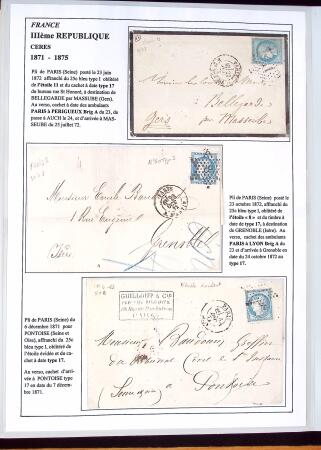 FRANCE
IIIème REPUBLIQUE
CERES
1871 - 1875
Pli de PARIS (Seine) posté le 23 juin
1872 affranchi du 25c bleu type I oblitéré
de l'étoile 11 et du cachet à date type 17
du bureau rue St Honoré, à destination de
BELLEGARDE par MASSUBE (Gers).
Au verso, cachet à date des ambulants
PARIS à PERIGUEUX Brig A du 23, de
passe à AUCH le 24, et d'arrivée à MAS-
SEUBE du 25 juillet 72.
Bellegarde
Gers par Masseube
Pli de PARIS (Seine) posté le 23
octobre 1872, affranchi du 25c
bleu type I, oblitéré de
l'étoile « 8 » et du timbre à
date de type 17, à destination
de GRENOBLE (Isère). Au
verso, cachet des ambulants
PARIS à LYON Brig A du
23 et d'arrivée à Grenoble en
date du 24 octobre 1872 au
type 17.
Monsieur Emile
1 Rue
Grenoble
Isère
Pli de PARIS (Seine) du
6 décembre 1871 pour
PONTOISE (Seine et
Oise), affranchi du 25c
bleu type I, oblitéré de
l'étoile évidée et du ca-
chet à date type 17.
Au verso, cachet d'arri-
vée à PONTOISE type
17 en date du 7 décembre
1871.
Etoile évidée
GUILLOUF & CIE
PARIS
Monsieur
Pontoise